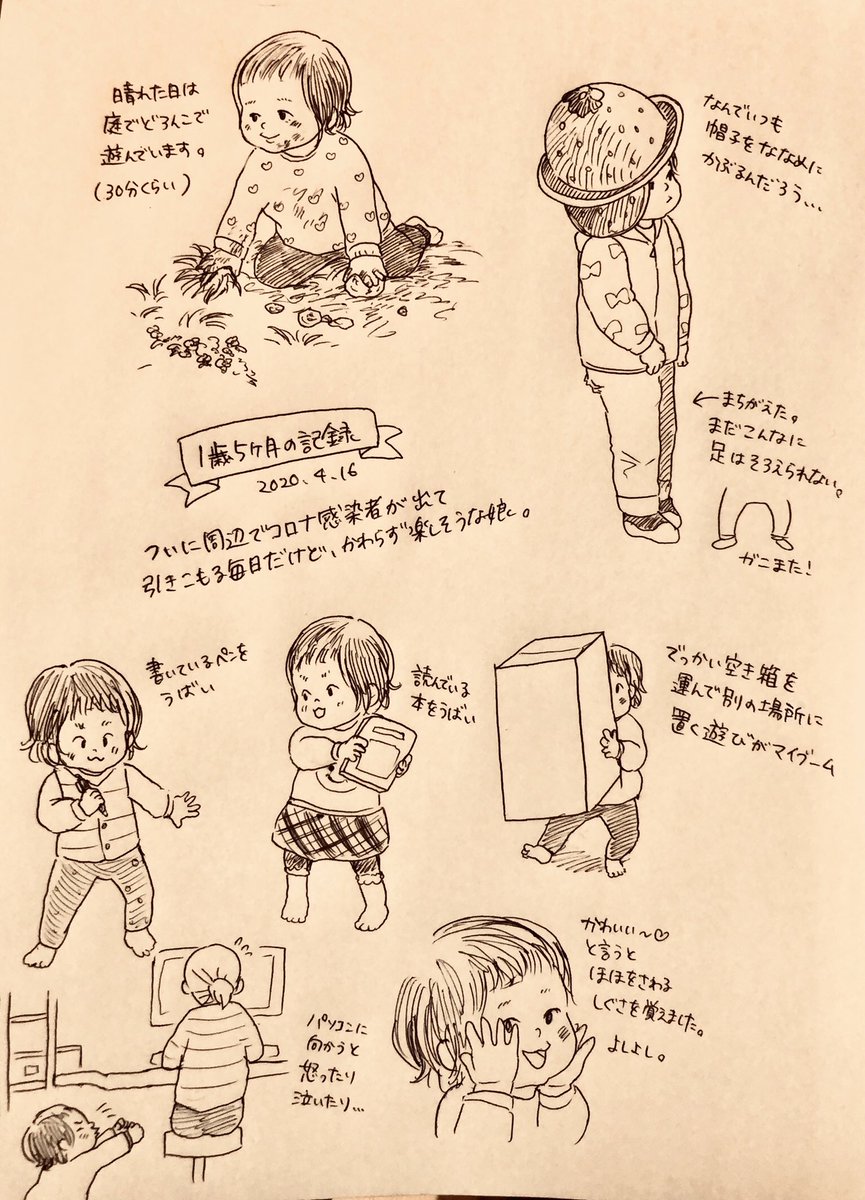 晴れた日は
庭でどろんこで
遊んでいます。
(30分くらい)
なんでいつも
帽子をななめに
かぶるんだろう...
←まちがえた。
まだこんなに
足はそろえられない。
ガニまた!
1歳5ヶ月の記録
2020.4.16
ついに周辺でコロナ感染者が出て
引きこもる毎日だけど、かわらず楽しそうな娘。
書いているペンを
うばい
読んでいる
本をうばい
でっかい空き箱を
運んで別の場所に
置く遊びがマイブーム
パソコンに
向かうと
怒ったり
泣いたり...
かわいい〜♡
と言うと
ほほをさわる
しぐさを覚えました。
よしよし。